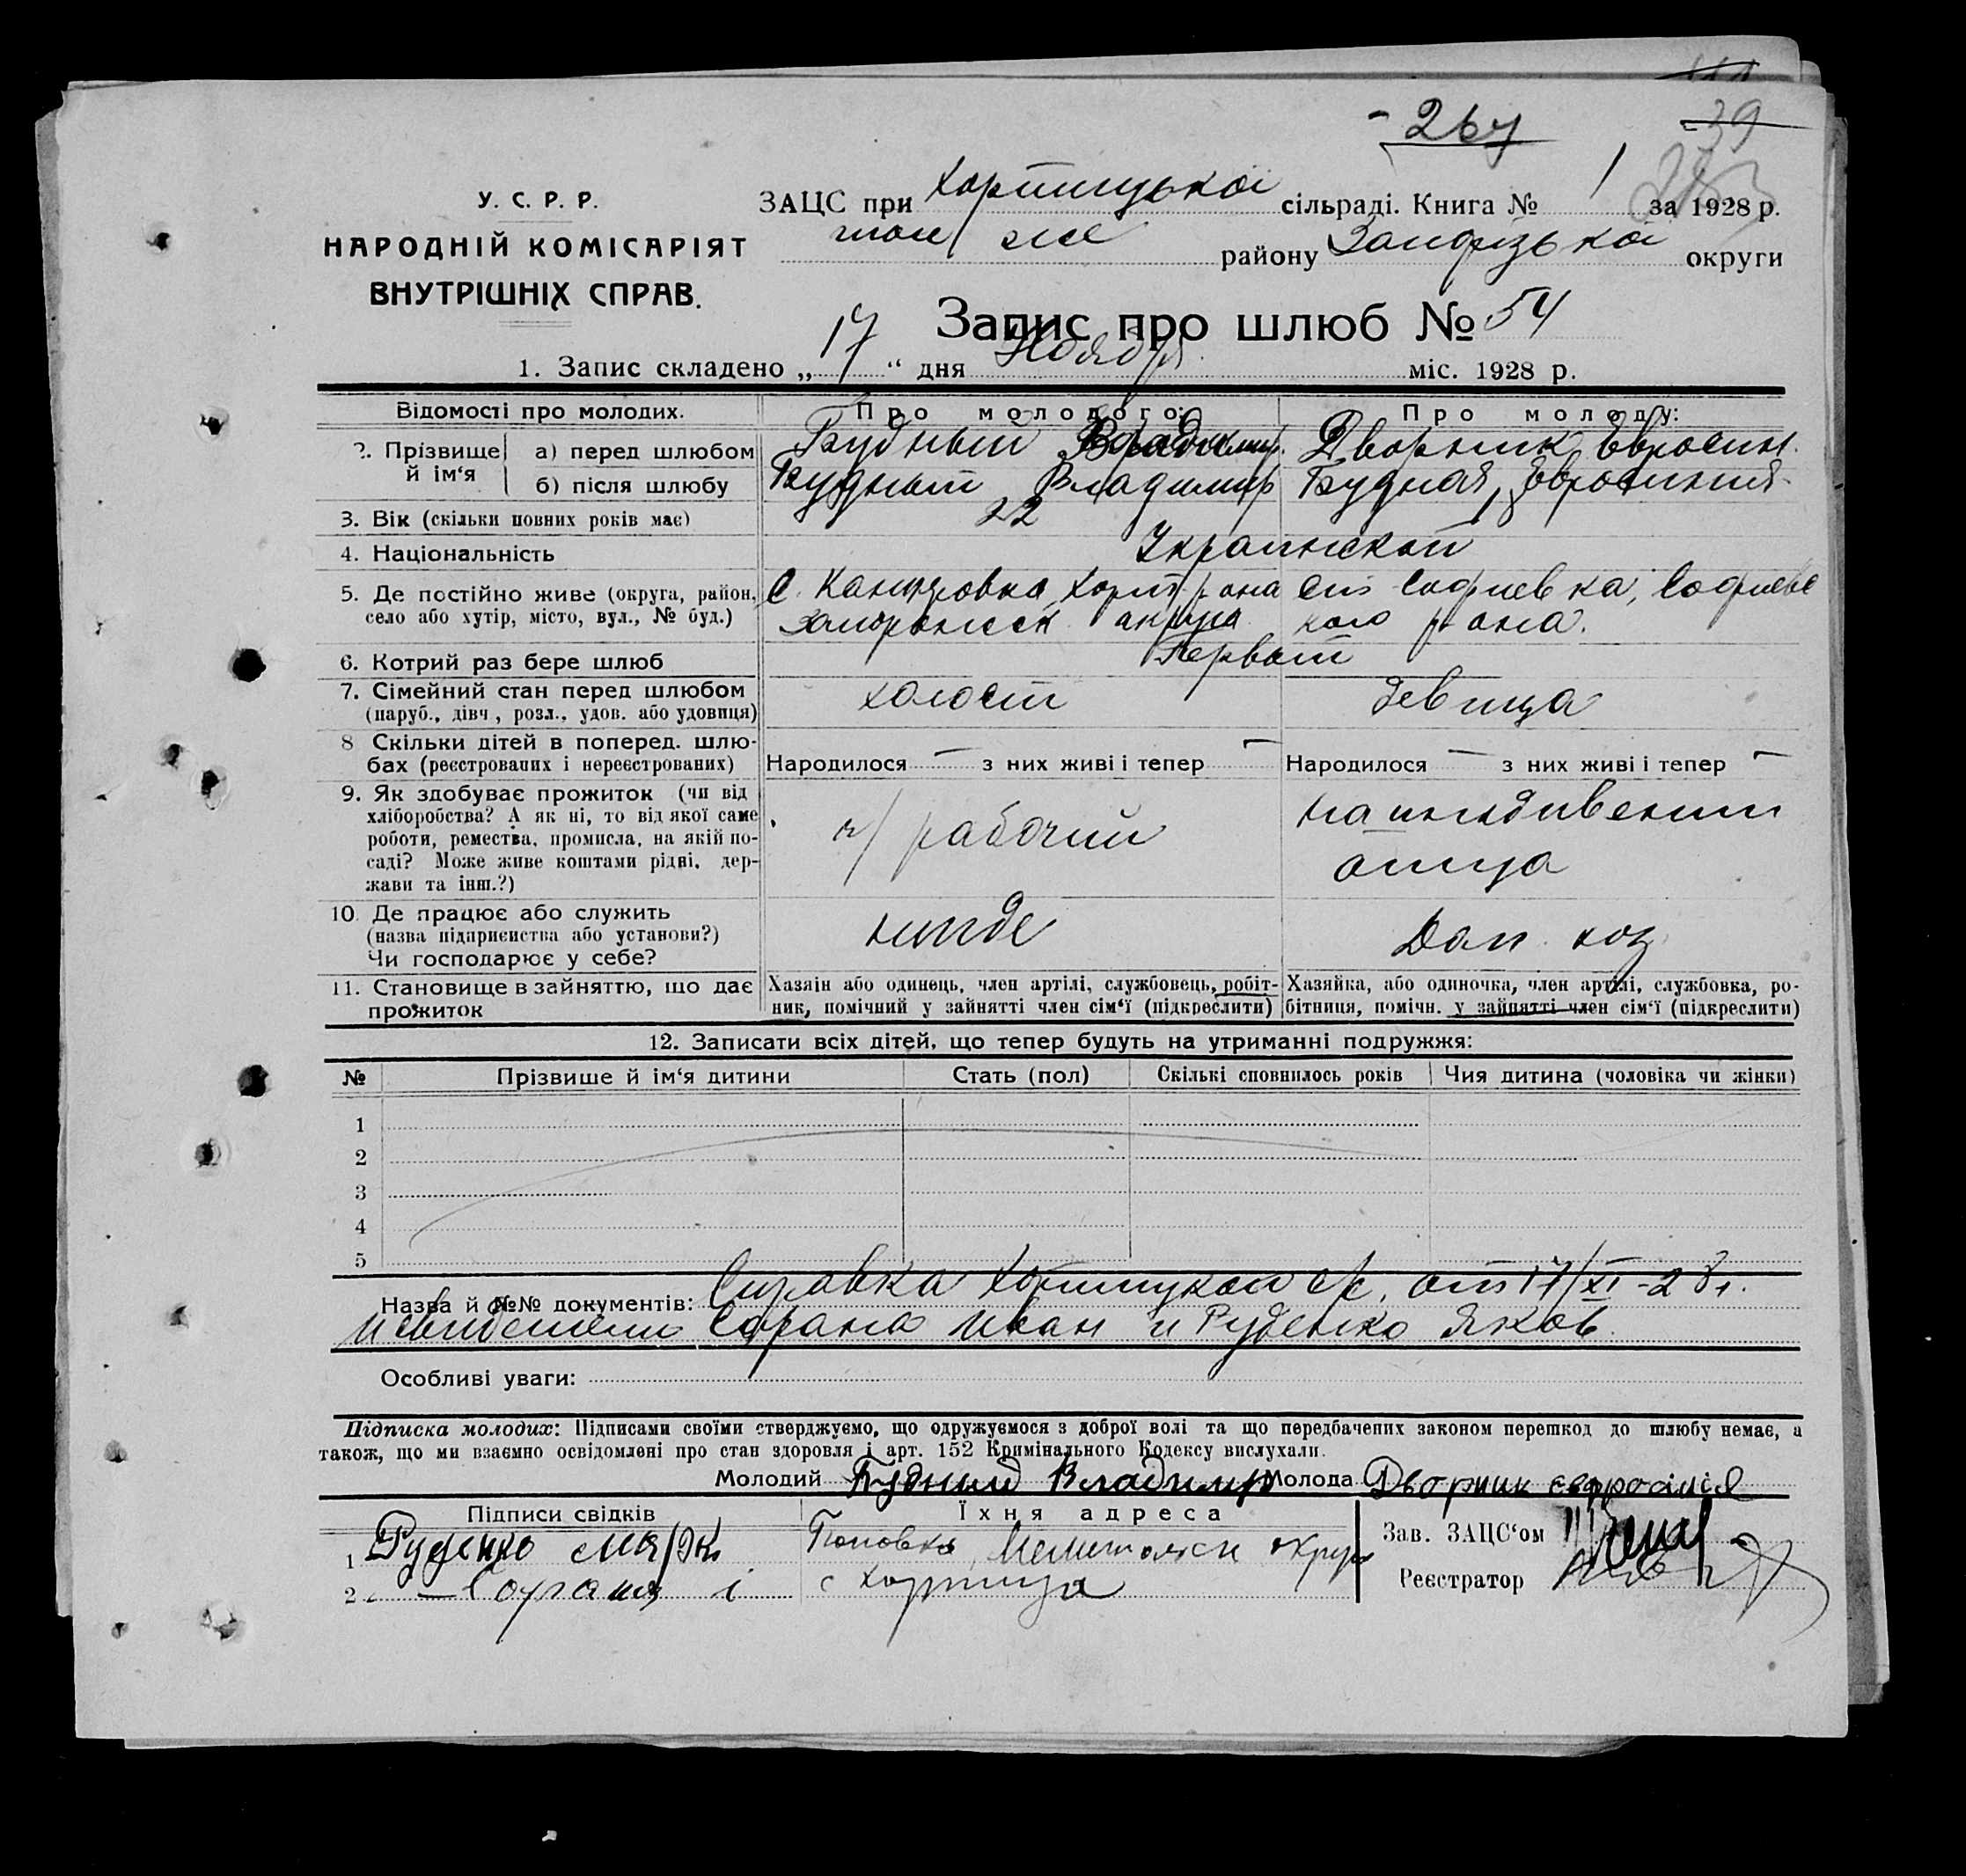 267
39
У. С. Р. Р.
НАРОДНІЙ КОМІСАРІЯТ
ВНУТРІШНІХ СПРАВ.
ЗАЦС при Хортицькоі сільраді. Книга № 1 за 1928 р.
той же району Запорізькоі округи
Запис про шлюб № 54
1. Запис складено „ 17 “ дня Ноября міс. 1928 р.
Відомості про молодих. Про молодого: Про молоду:
2. Прізвище й ім‘я
а) перед шлюбом Будный Владимир. Дворник Евросин.
б) після шлюбу Будный Владимир Будная, Евросиния
3. Вік (скільки повних років має) 22
4. Національність Украинской
5. Де постійно живе (округа, район, С. Канцеровка, Хорт. р-она Софиевка, Софиевс
село або хутір, місто, вул., № буд.) Запорожск округа кого р-она.
6. Котрий раз бере шлюб Первый
7. Сімейний стан перед шлюбом холост девица
(паруб., дівч., розл., удов. або удовиця)
8 Скільки дітей в поперед. шлю-
бах (реєстрованих і нереєстрованих) Народилося — з них живі і тепер — Народилося — з них живі і тепер —
9. Як здобуває прожиток (чи від на иждивении
хліборобства? А як ні, то від якої саме ч/рабочий
роботи, ремества, промисла, на якій по- отца
саді? Може живе коштами рідні, дер-
жави та інш.?)
10. Де працює або служить нигде Дом. хоз
(назва підприємства або установи?)
Чи господарює у себе?
11. Становище в зайняттю, що дає Хазяїн або одинець, член артілі, службовець, робіт- Хазяйка, або одиночка, член артілі, службовка, ро-
прожиток ник, помічний у зайнятті член сім‘ї (підкреслити) бітниця, помічн. у зайнятті член сім‘ї (підкреслити)
12. Записати всіх дітей, що тепер будуть на утриманні подружжя:
№ Прізвише й ім‘я дитини Стать (пол) Скількі сповнилось років Чия дитина (чоловіка чи жінки)
1
2
3
4
5
Назва й №№ документів: Справка Хортицкой с/с. от 17/XI-28г.
и свидетели Сорана Иван и Руденко Яков.
Особливі уваги:
Підписка молодих: Підписами своїми стверджуємо, що одружуємося з доброї волі та що передбачених законом перешкод до шлюбу немає, а
також, що ми взаємно освідомлені про стан здоровля і арт. 152 Кримінального Кодексу вислухали.
Молодий Будный Владимир Молода Дворник євфросінія
Підписи свідків Їхня адреса
1 Руденко Поповка, Мелитопск округ Зав. ЗАЦС‘ом
2 Сорана і с Хортица Реєстратор